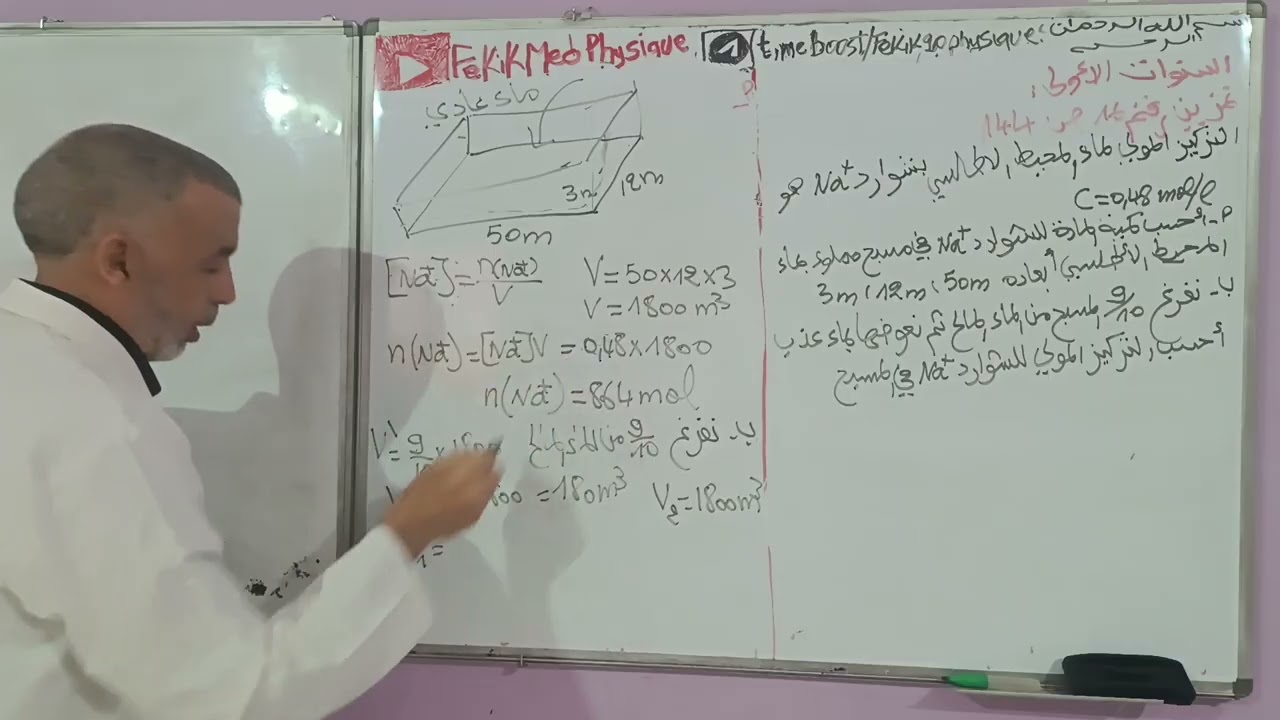 FekikMedPhysique
timeboost/Fekikgophysique
بسم الله الرحمان الرحيم
السنوات الأولى:
تمرين رقم 16 ص: 144
التركيز المولي لماء المحيط الاطلسي بشوارد Na+ هو
C=0,48 mol/l
أحسب كمية المادة للشوارد Na+ في مسبح مملوء بماء
المحيط الأطلسي أبعاده 50m ، 12m ، 3m
ب- نفرغ 9/10 المسبح من الماء المالح ثم نعوضها بماء عذب
أحسب التركيز المولي للشوارد Na+ في المسبح
ماء عادي
3m
12m
50m
[Na+]=n(Na+)/V V=50x12x3
V=1800m³
n(Na+)=[Na+]V=0,48x1800
n(Na+)=864mol
ب- نفرغ 9/10 من الماء المالح
=180m³ V₂=1800m³